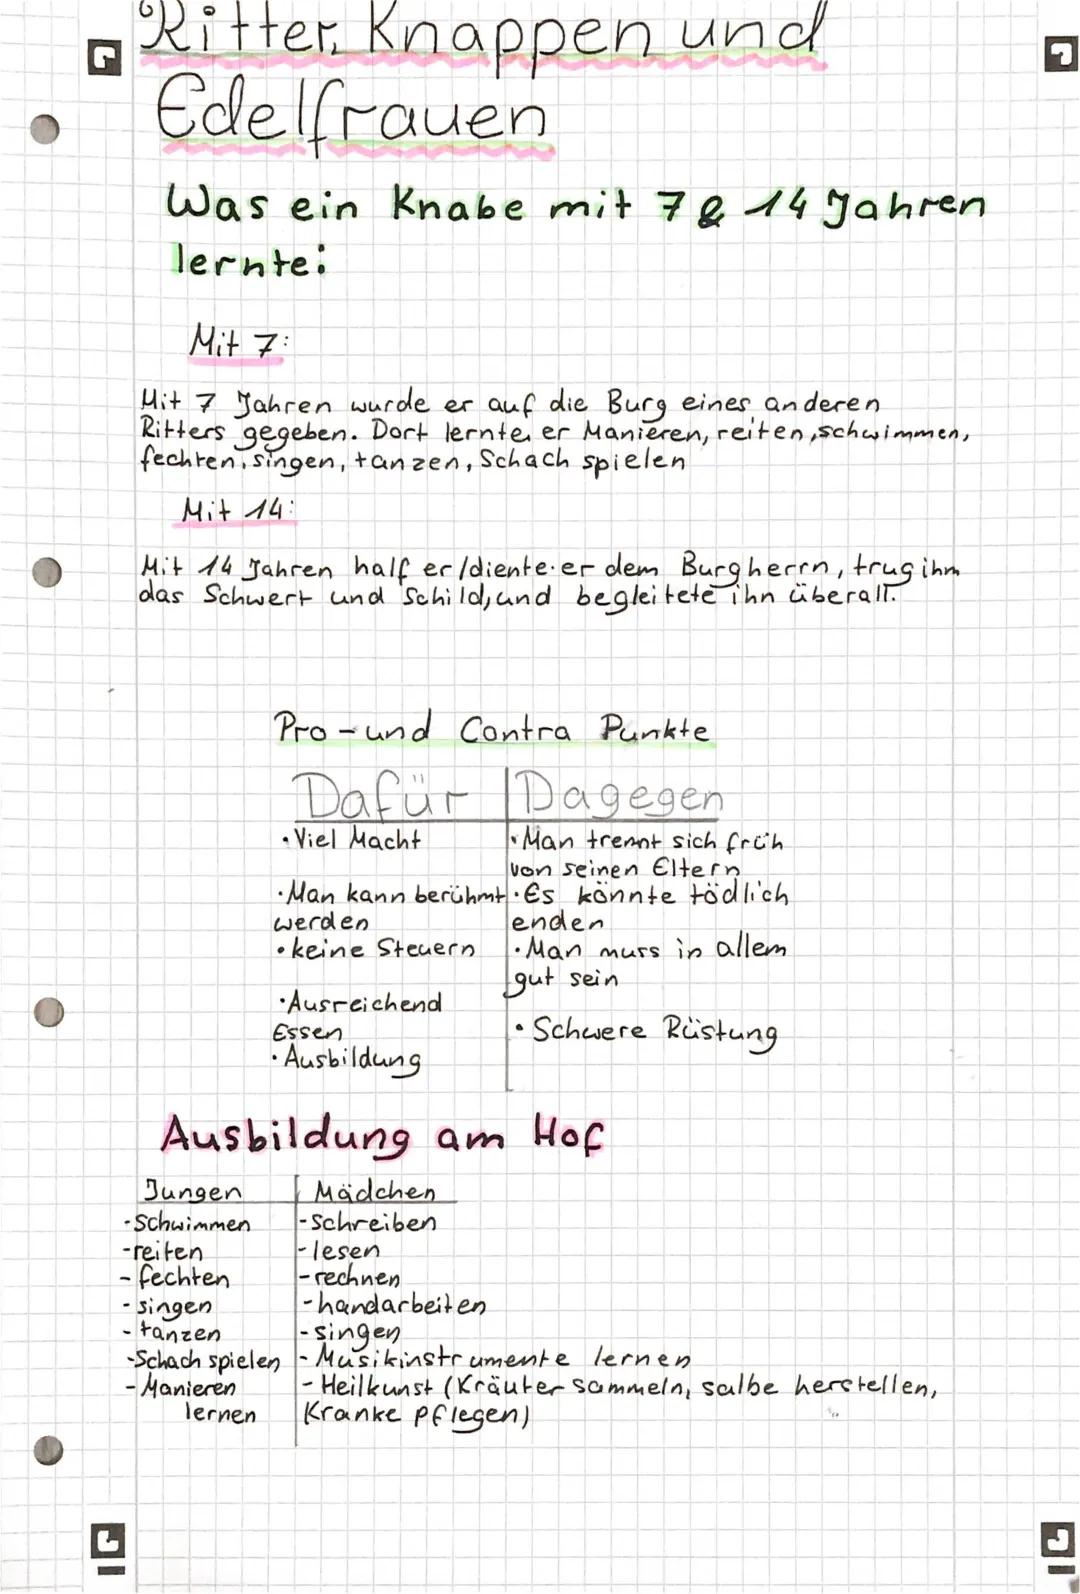 Ritter, Knappen und
Edelfrauen
Was ein Knabe mit 7 & 14 Jahren
lernte:
Mit 7:
Mit 7 Jahren wurde er auf die Burg eines anderen
Ritters gegeben. Dort lernte er Manieren, reiten, schwimmen,
fechten, singen, tanzen, Schach spielen
Mit 14:
Mit 14 Jahren half er/diente er dem Burgherrn, trug ihm
das Schwert und Schild, und begleitete ihn überall.
Pro- und Contra Punkte
Dafür Dagegen
• Viel Macht
• Man kann berühmt
werden
• keine Steuern
• Ausreichend
Essen
• Ausbildung
• Man trennt sich früh
von seinen Eltern
• Es könnte tödlich
enden
• Man muss in allem
gut sein
• Schwere Rüstung
Ausbildung am Hof
Jungen
- Schwimmen
- reiten
- fechten
- singen
- tanzen
- Schach spielen
- Manieren
lernen
Mädchen
- schreiben
- lesen
- rechnen
- handarbeiten
- singen
- Musikinstrumente lernen
- Heilkunst (Kräuter sammeln, salbe herstellen,
Kranke pflegen)